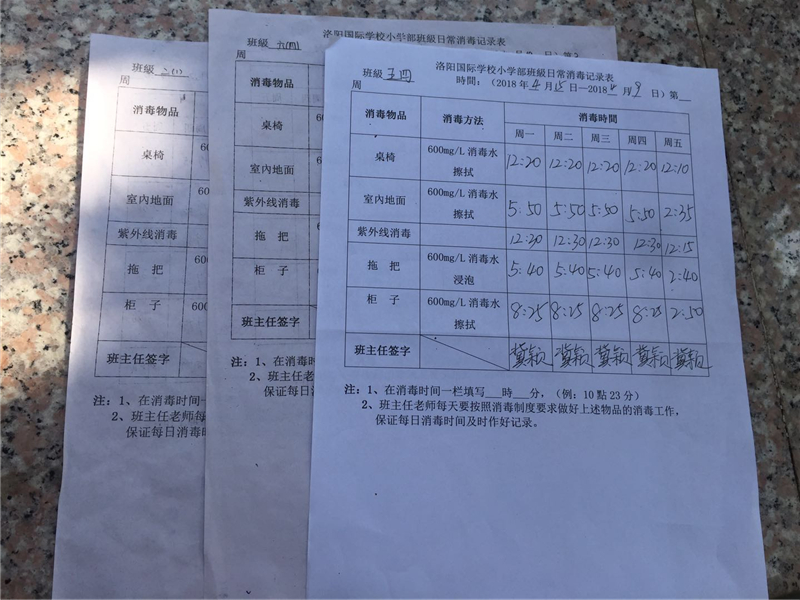 班級 二(1)
周
消毒物品
桌椅
室内地面
紫外线消毒
拖 把
柜 子
班主任签字
注：1、在消毒时间一
2、班主任老师每
保证每日消毒时
洛阳国际学校小学部班級日常消毒记录表
班級
周
消毒物品
桌椅
室内地面
紫外线消毒
拖 把
柜 子
班主任签字
注：1、在消毒时
2、班主任
保证每日
洛阳国际学校小学部班級日常消毒记录表
班級 五四 時間：（2018 年 4 月 日—2018 月 9 日）第
周
消毒物品 消毒方法 消毒時間
周一 周二 周三 周四 周五
桌椅 600mg/L 消毒水擦拭 12:20 12:20 12:20 12:20 12:10
室內地面 600mg/L 消毒水擦拭 5:50 5:50 5:50 5:50 2:35
紫外线消毒 12:30 12:30 12:30 12:30 12:15
拖 把 600mg/L 消毒水浸泡 5:40 5:40 5:40 5:40 2:40
柜 子 600mg/L 消毒水擦拭 8:25 8:25 8:25 8:25 2:50
班主任签字
注：1、在消毒时间一栏填写 時 分，（例：10 點 23 分）
2、班主任老师每天要按照消毒制度要求做好上述物品的消毒工作，
保证每日消毒时间及时作好记录。